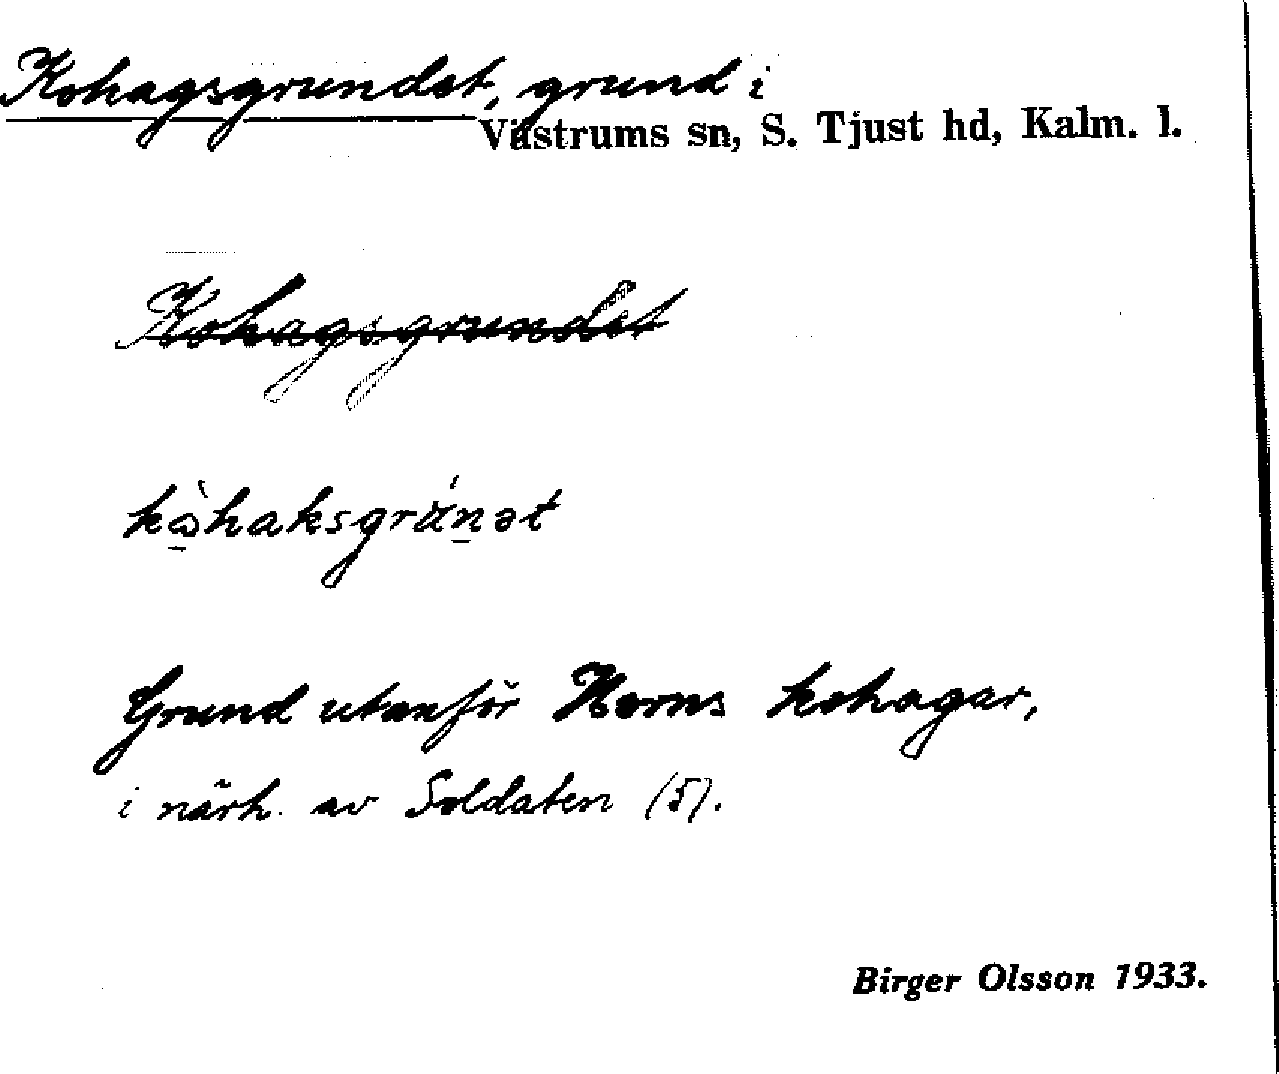 Kohagsgrundet, grund i
Västrums sn, S. Tjust hd, Kalm. l.
Kohagsgrundet
kòhaksgrúnət
Grund utanför Horns kohagar,
i närh. av Soldaten (5).
Birger Olsson 1933.